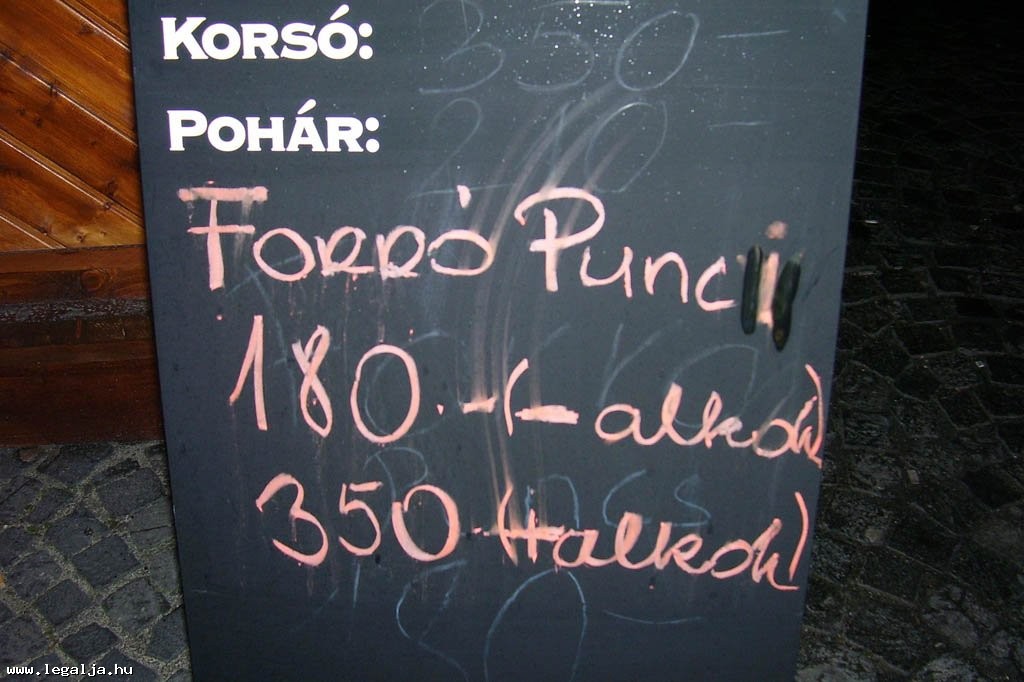 KORSÓ: 350 -
POHÁR: 210 -
FORRÓ Punci
180.-(- alkoh)
350.-(+alkoh)
www.legalja.hu